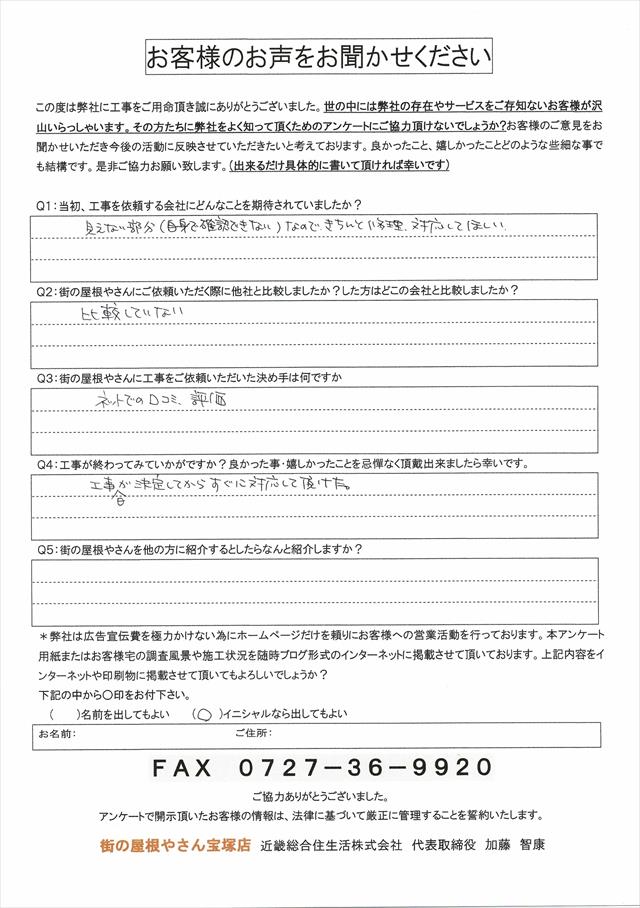 お客様のお声をお聞かせください
この度は弊社に工事をご用命頂き誠にありがとうございました。世の中には弊社の存在やサービスをご存知ないお客様が沢
山いらっしゃいます。その方たちに弊社をよく知って頂くためのアンケートにご協力頂けないでしょうか?お客様のご意見をお
聞かせいただき今後の活動に反映させていただきたいと考えております。良かったこと、嬉しかったことどのような些細な事で
も結構です。是非ご協力お願い致します。(出来るだけ具体的に書いて頂ければ幸いです)
Q1:当初、工事を依頼する会社にどんなことを期待されていましたか?
見えない部分(自身で確認できない)なので、きちんと修理、対応してほしい。
Q2:街の屋根やさんにご依頼いただく際に他社と比較しましたか?した方はどこの会社と比較しましたか?
比較していない
Q3:街の屋根やさんに工事をご依頼いただいた決め手は何ですか
ネットでの口コミ、評価
Q4:工事が終わってみていかがですか?良かった事・嬉しかったことを忌憚なく頂戴出来ましたら幸いです。
工事が決定してからすぐに対応して頂けた。
Q5:街の屋根やさんを他の方に紹介するとしたらなんと紹介しますか?
*弊社は広告宣伝費を極力かけない為にホームページだけを頼りにお客様への営業活動を行っております。本アンケート
用紙またはお客様宅の調査風景や施工状況を随時ブログ形式のインターネットに掲載させて頂いております。上記内容をイ
ンターネットや印刷物に掲載させて頂いてもよろしいでしょうか?
下記の中から○印をお付下さい。
( )名前を出してもよい (○)イニシャルなら出してもよい
お名前: ご住所:
FAX 0727-36-9920
ご協力ありがとうございました。
アンケートで開示頂いたお客様の情報は、法律に基づいて厳正に管理することを誓約いたします。
街の屋根やさん宝塚店 近畿総合住生活株式会社 代表取締役 加藤 智康